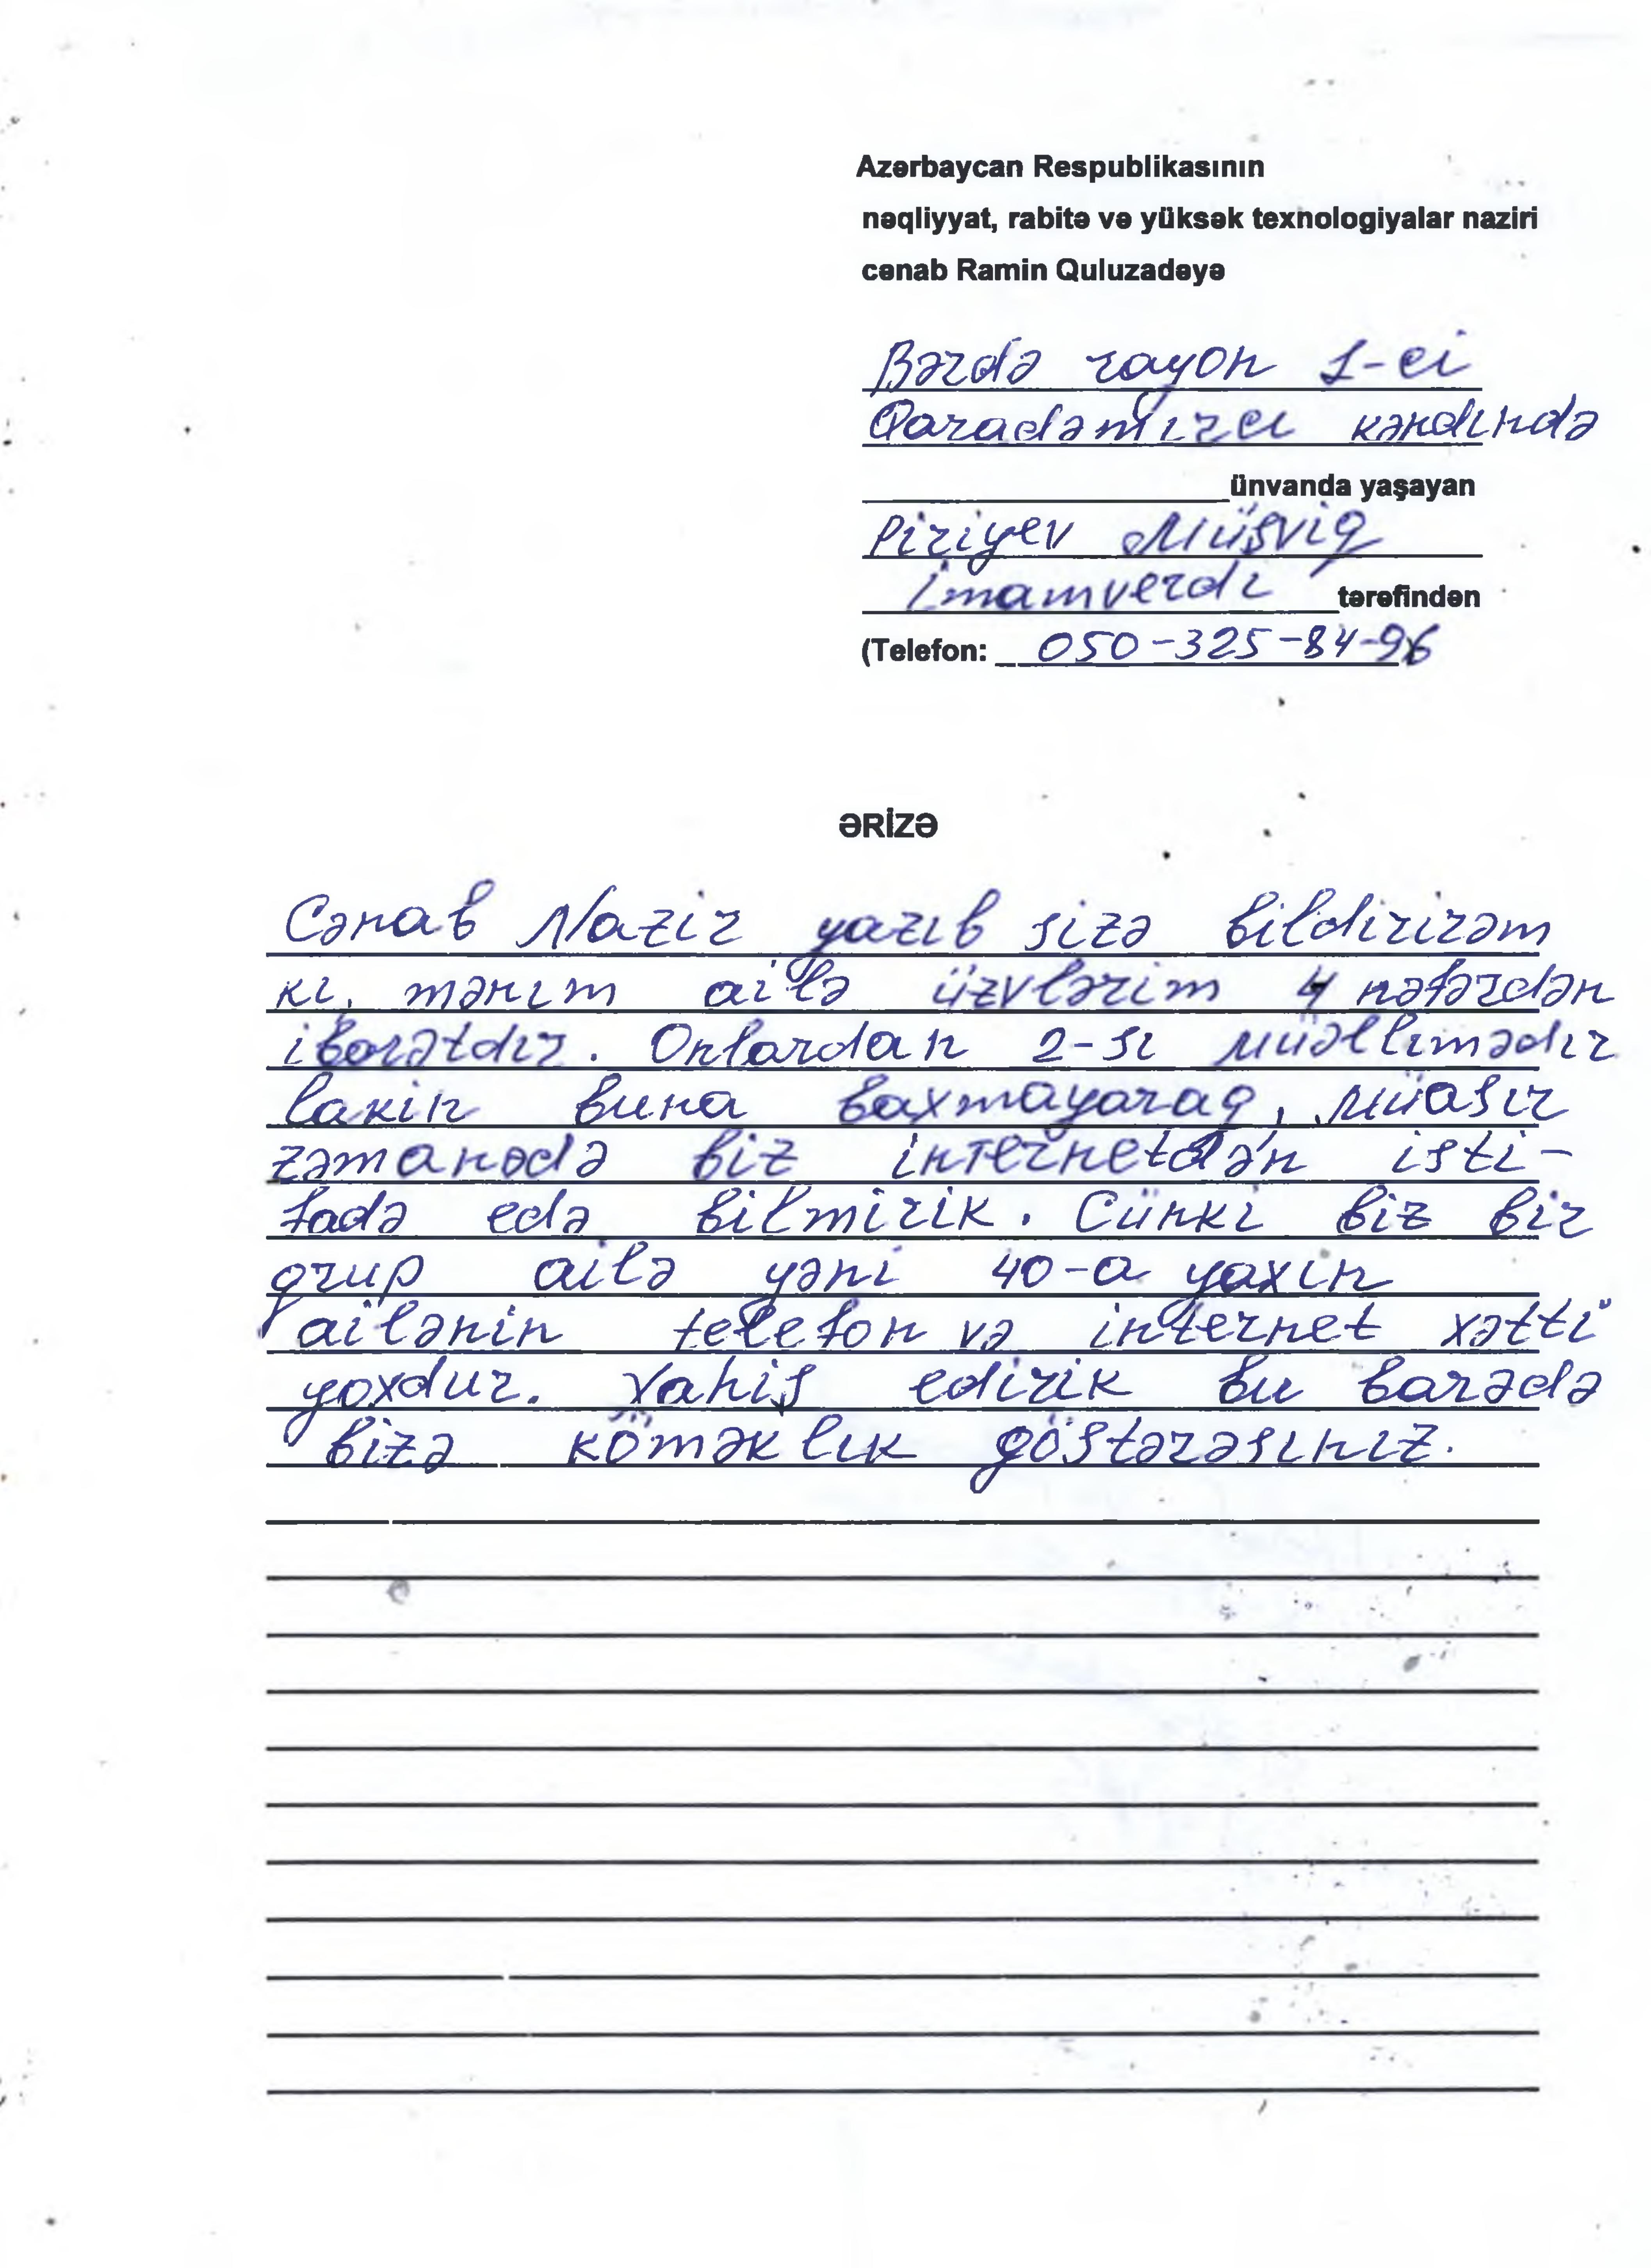 Azərbaycan Respublikasının
nəqliyyat, rabitə və yüksək texnologiyalar naziri
cənab Ramin Quluzadəyə
Bərdə rayon 1-ci
Qaradəmirçi kəndində
ünvanda yaşayan
Piriyev Müşviq
İmamverdi tərəfindən
(Telefon: 050-325-84-96
ƏRİZƏ
Cənab Nazir yazıb sizə bildirirəm
ki, mənim ailə üzvlərim 4 nəfərdən
ibarətdir. Onlardan 2-si müəllimədir
lakin buna baxmayaraq, müasir
zəmanədə biz internetdən isti-
fadə edə bilmirik. Cünki biz bir
qrup ailə yəni 40-a yaxın
ailənin telefon və internet xətti
yoxdur. Xahiş edirik bu barədə
bizə köməklik göstərəsiniz.